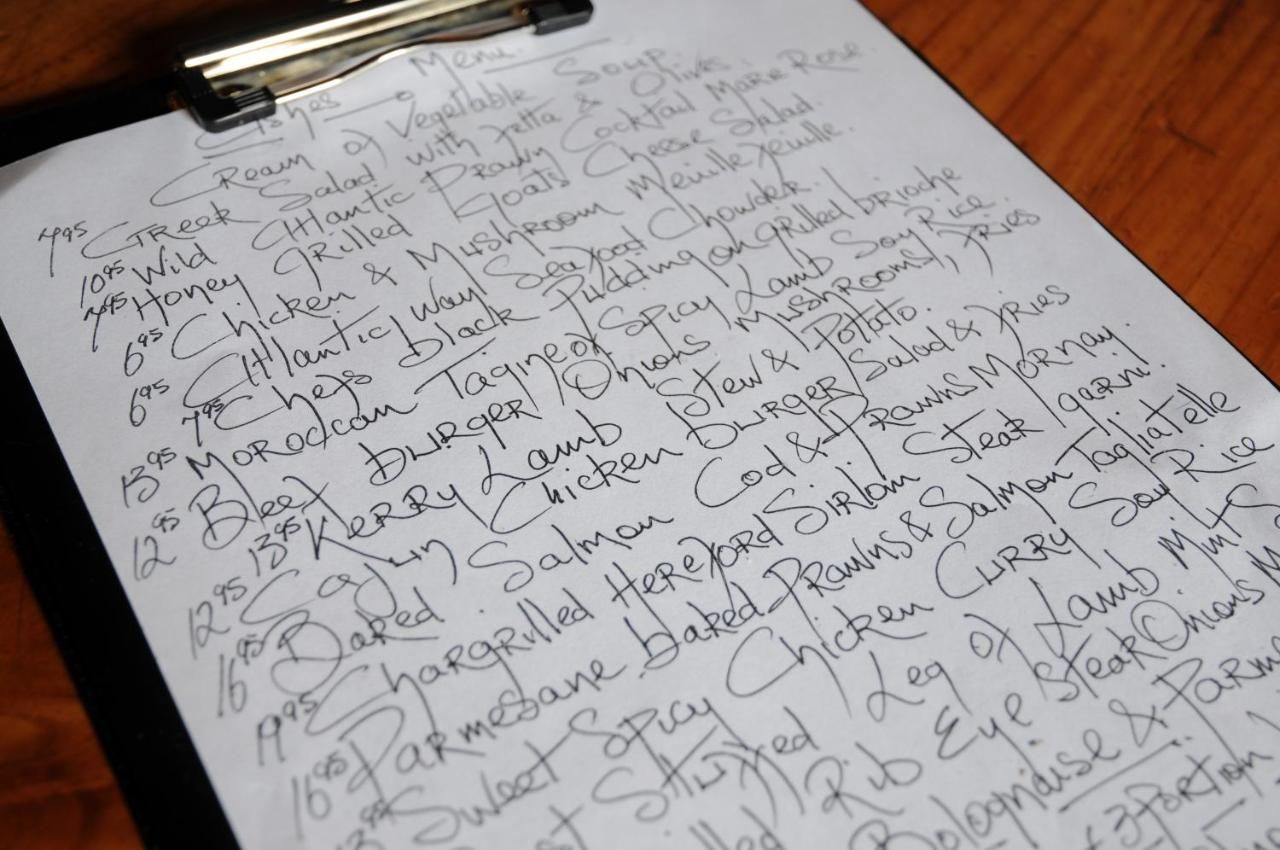 Menu.
Cream of Vegetable Soup
7.95 Greek Salad with Fetta & Olives
10.95 Wild Atlantic Prawn Cocktail Marie Rose.
7.95 Honey Grilled Goats Cheese Salad.
6.95 Chicken & Mushroom
6.95 Atlantic Way Seafood Chowder.
7.95 Chefs black Pudding on grilled brioche
13.95 Moroccan Tagine of Spicy Lamb Soy Rice.
12.95 Beef burger, Onions Mushrooms, Fries
13.95 Kerry Lamb Stew & Potato.
12.95 Cajun Chicken burger Salad & Fries
16.95 Baked Salmon Cod & Prawns Mornay.
19.95 Chargrilled Hereford Sirloin Steak garni.
16.95 Parmesane baked Prawns & Salmon Tagliatelle
13.95 Sweet Spicy Chicken Curry Soy Rice
Stuffed Leg of Lamb Mint
Rib Eye Steak Onions
Bolognaise &
Portion